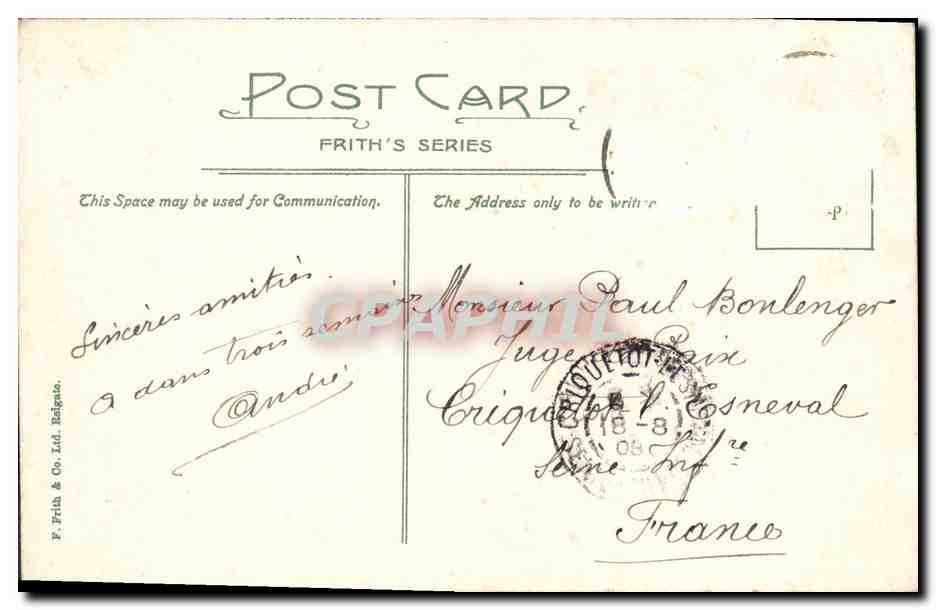 POST CARD
FRITH'S SERIES
This Space may be used for Communication.
The Address only to be written
-P
Sincères amitiés.
A dans trois semaines
André
Monsieur Paul Boulenger
Juge Paix
Criquetot l'Esneval
Seine Infre
France
CRIQUETOT-L'ES
18-8
08
F. Frith & Co. Ltd. Reigate.
CPAPHIL